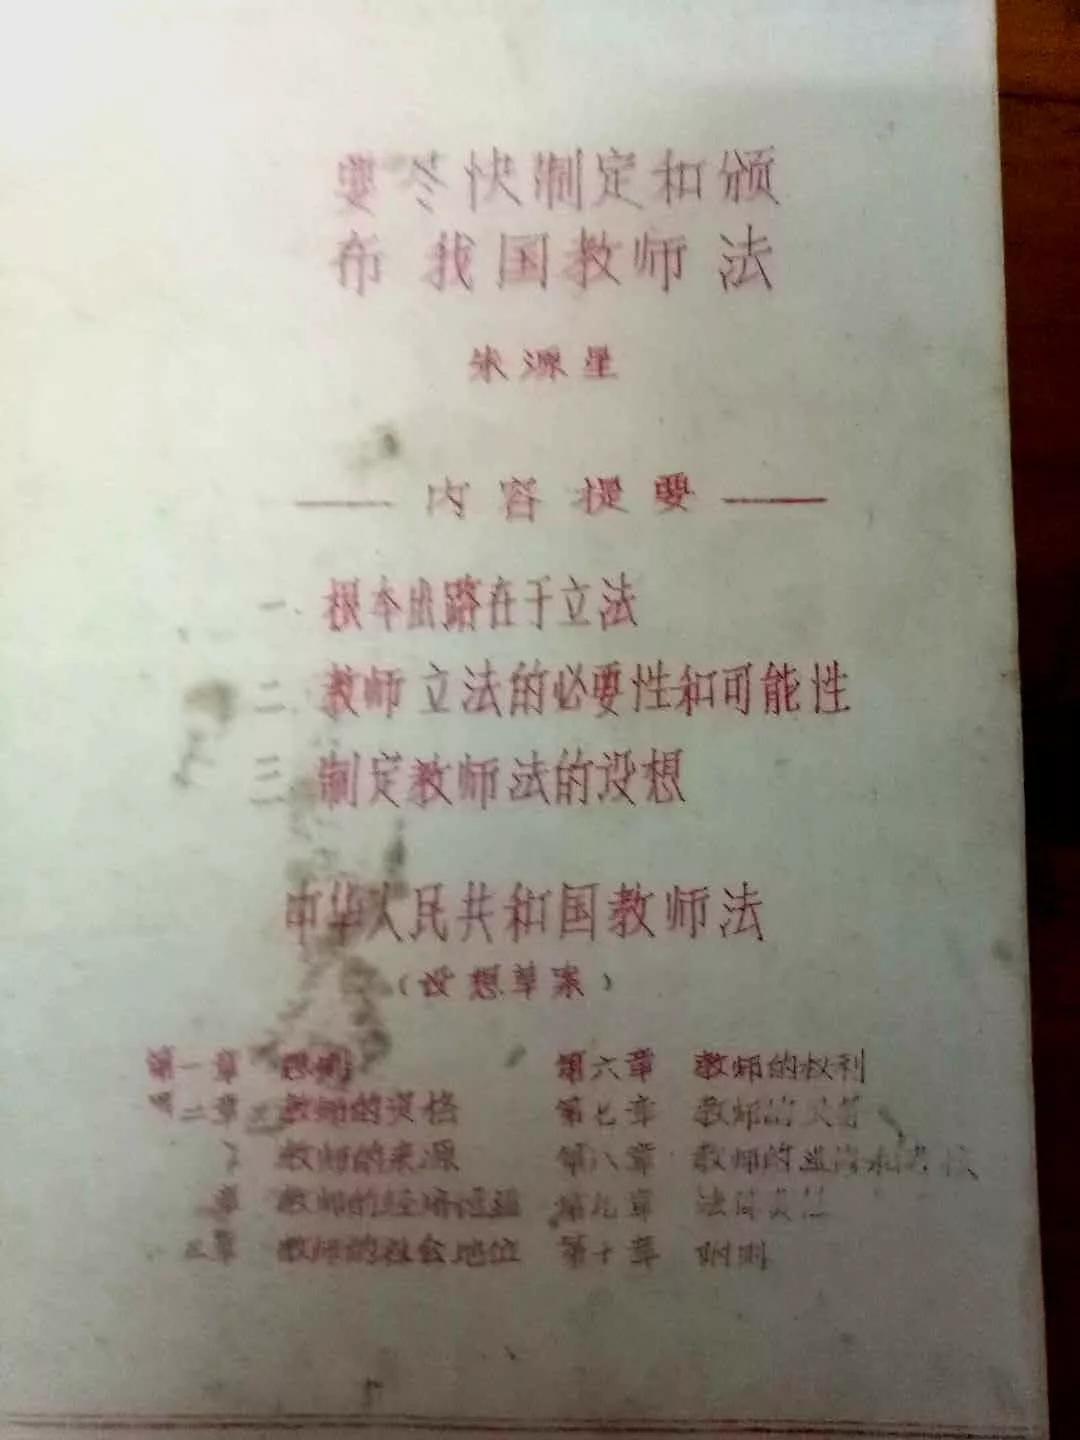 要尽快制定和颁
布我国教师法
朱源星
内容提要
一、根本出路在于立法
二、教师立法的必要性和可能性
三、制定教师法的设想
中华人民共和国教师法
(设想草案)
第一章 总则 第六章 教师的权利
第二章 教师的资格 第七章 教师的
教师的来源 第八章 教师的
章 教师的经济 第九章 法律责任
章 教师的社会地位 第十章 附则